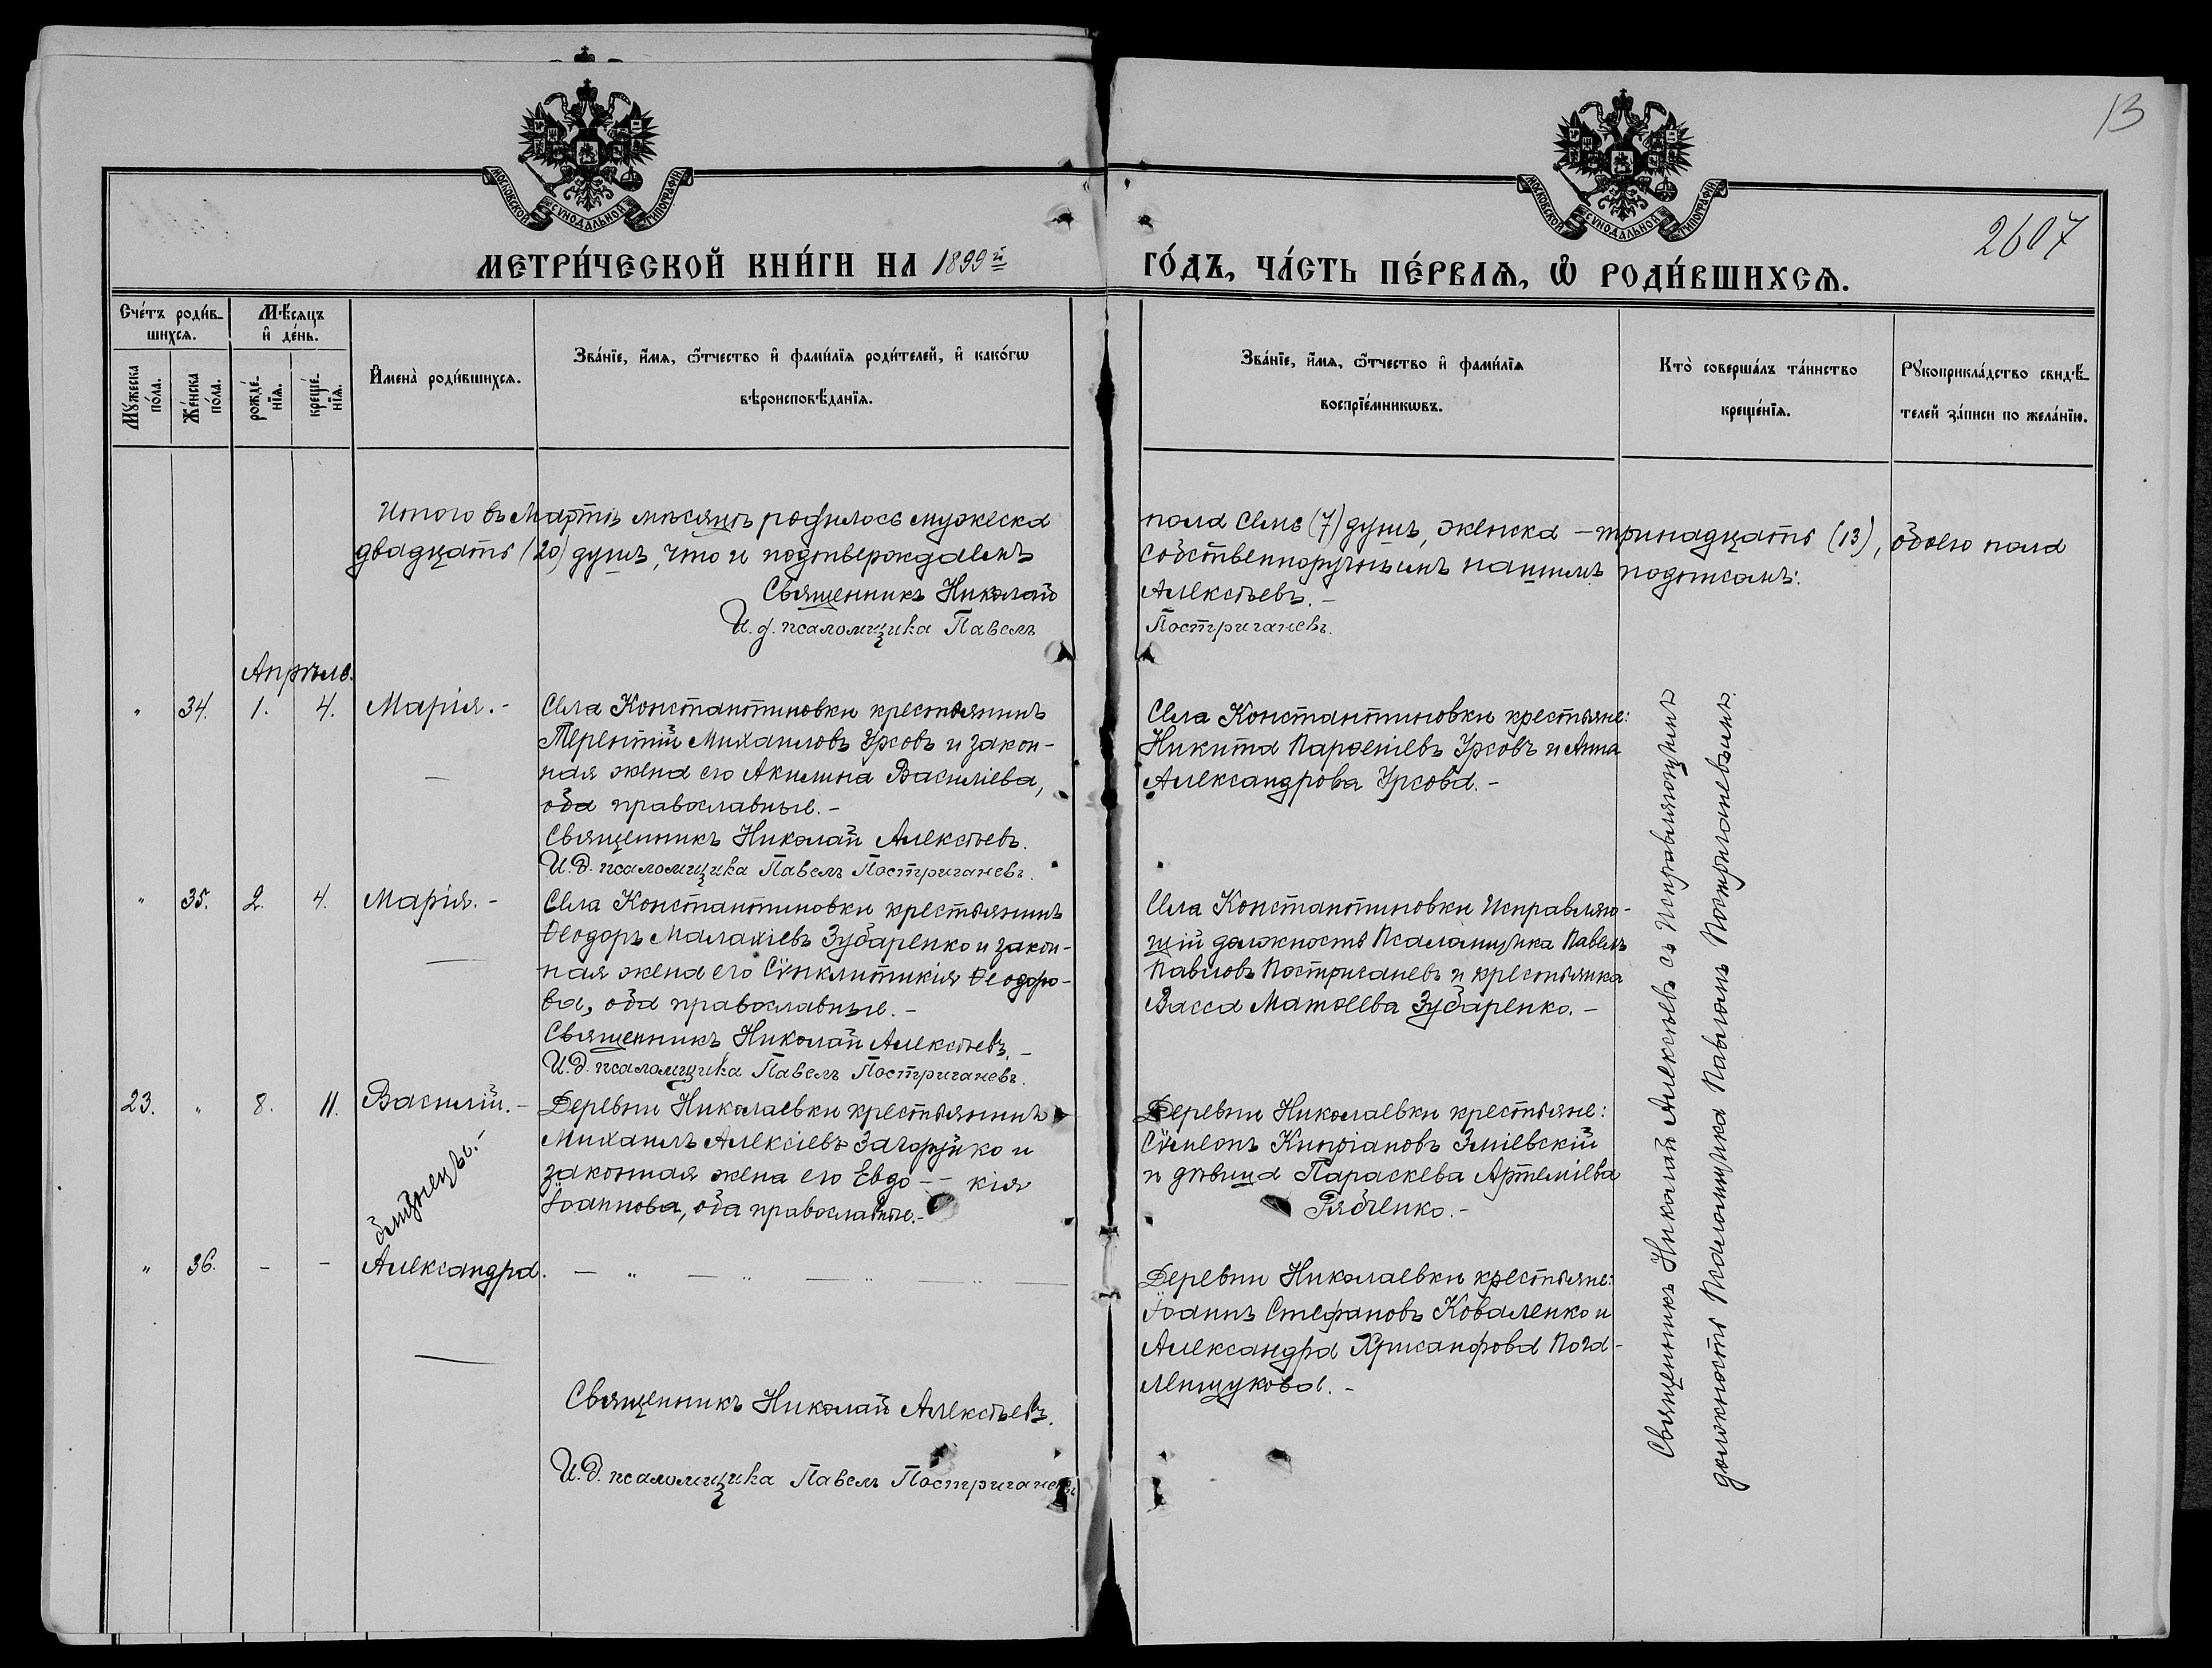 13
2607
МОСКОВСКОЙ СУНОДАЛЬНОЙ ТИПОГРАФІИ
МОСКОВСКОЙ СУНОДАЛЬНОЙ ТИПОГРАФІИ
МЕТРИ́ЧЕСКОЙ КНИ́ГИ НА 1899й
ГО́ДЪ, ЧА́СТЬ ПЕ́РВАѦ, Ѡ҆ РОДИ́ВШИХСѦ.
Сче́тъ роди́в-
шихсѧ.
Мѣ́сѧцъ
и҆ де́нь.
Мꙋ́жеска
по́ла.
Же́нска
по́ла.
рожде́-
нїѧ.
креще́-
нїѧ.
И҆мена̀ роди́вшихсѧ.
Зва́нїе, и҆́мѧ, ѻ҆́тчество и҆ фами́лїѧ роди́телей, и҆ како́гѡ
вѣроисповѣ́данїѧ.
Зва́нїе, и҆́мѧ, ѻ҆́тчество и҆ фами́лїѧ
воспрїе́мникѡвъ.
Кто̀ соверша́лъ та́инство
креще́нїѧ.
Рꙋкоприкла́дство свидѣ́-
телей за́писи по жела́нїю.
Итого въ Мартѣ мѣсяцѣ родилось мужеска
пола семь (7) душъ, женска - тринадцать (13), обоего пола
двадцать (20) душъ, что и подтверждаемъ
собственноручнымъ нашимъ подписомъ:
Священникъ Николай
Алексѣевъ. -
И. д. псаломщика Павелъ
Постригачевъ.
Апрѣль.
" 34. 1. 4. Марія. -
Села Константиновки крестьянинъ
Терентій Михаиловъ Урсовъ и закон-
ная жена его Акилина Василіева,
оба православные. -
Священникъ Николай Алексѣевъ.
И. д. псаломщика Павелъ Постригачевъ.
Села Константиновки крестьяне:
Никита Парѳеніевъ Урсовъ и Анна
Александрова Урсова. -
" 35. 2. 4. Марія. -
Села Константиновки крестьянинъ
Ѳеодоръ Малахіевъ Зубаренко и закон-
ная жена его Сѵнклитикія Ѳеодоро-
ва, оба православные. -
Священникъ Николай Алексѣевъ. -
И. д. псаломщика Павелъ Постригачевъ.
Села Константиновки Исправляю-
щій должность Псаломщика Павелъ
Павловъ Постригачевъ и крестьянка
Васса Матѳеева Зубаренко. -
23. " 8. 11. Василій. -
близнецы!
Деревни Николаевки крестьянинъ
Михаилъ Алексіевъ Загоруйко и
законная жена его Евдо - - кія
Іоаннова, оба православные. -
Деревни Николаевки крестьяне:
Сѵмеонъ Кипріановъ Зміевскій
и дѣвица Параскева Артеміева
Рябченко. -
" 36. - - Александра. - " - " - " - " -
Деревни Николаевки крестьяне:
Іоаннъ Стефановъ Коваленко и
Александра Хрисанфова Пога-
лещукова. -
Священникъ Николай Алексѣевъ.
И. д. псаломщика Павелъ Постригачевъ
Священникъ Николай Алексѣевъ съ Исправляющимъ
должность Псаломщика Павломъ Постригачевымъ.